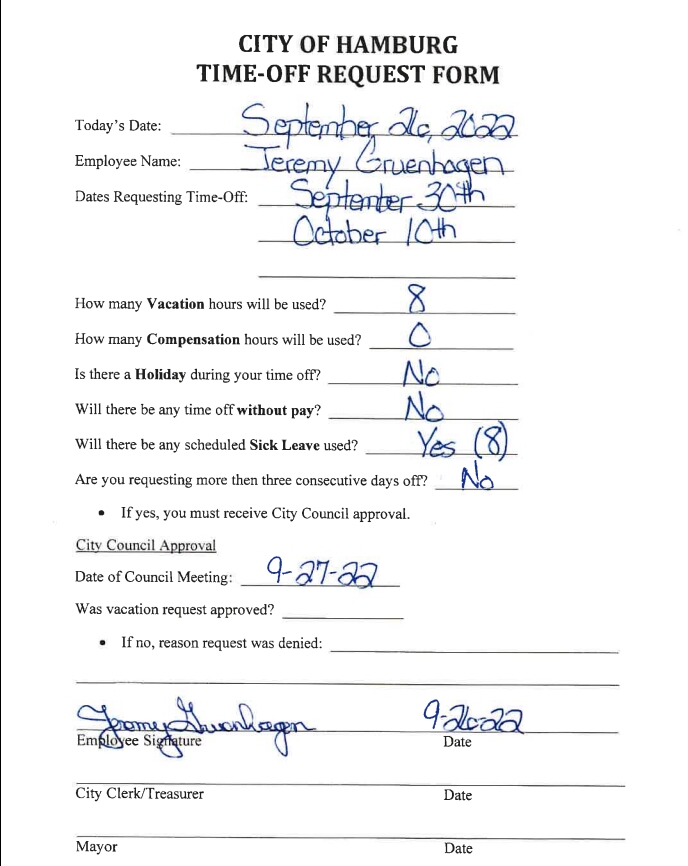 CITY OF HAMBURG
TIME-OFF REQUEST FORM
Today's Date: September 26, 2022
Employee Name: Jeremy Gruenhagen
Dates Requesting Time-Off: September 30th
October 10th
How many Vacation hours will be used? 8
How many Compensation hours will be used? 0
Is there a Holiday during your time off? No
Will there be any time off without pay? No
Will there be any scheduled Sick Leave used? Yes (8)
Are you requesting more then three consecutive days off? No
• If yes, you must receive City Council approval.
City Council Approval
Date of Council Meeting: 9-27-22
Was vacation request approved?
• If no, reason request was denied:
Jeremy Gruenhagen 9-26-22
Employee Signature Date
City Clerk/Treasurer Date
Mayor Date